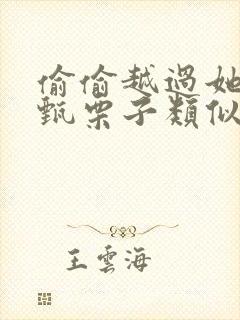 偷偷越過她
甄栗子類似
王雲海